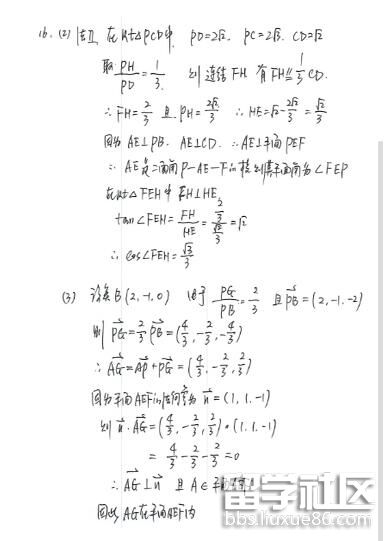 16. (2) 法二 在Rt△PCD中 PD=2√2. PC=2√3. CD=2
取 PH/PD = 1/3. 则 连结 FH 有 FH ∥ 1/3 CD.
∴ FH = 2/3 且 PH = 2√2/3 ∴ HE = √2 - 2√2/3 = √2/3
因为 AE⊥PD. AE⊥CD. ∴ AE⊥平面 PEF
∴ 二面角 P-AE-F的 平面角为 ∠FEP
在Rt△FEH中 FH⊥HE
tan∠FEH = FH/HE = (2/3)/(√2/3) = √2
∴ cos∠FEH = √3/3
(3) B(2,-1,0) 由于 PG/PB = 2/3 且 PB = (2,-1,-2)
则 PG = 2/3 PB = (4/3, -2/3, -4/3)
∴ AG = AP + PG = (4/3, -2/3, 2/3)
因为平面AEF的法向量为 n = (1,1,-1)
则 n·AG = (4/3, -2/3, 2/3)·(1,1,-1)
= 4/3 - 2/3 - 2/3 = 0
∴ AG⊥n 且 A∈平面AEF
因此 AG在平面AEF内
留学社区
bbs.liuxue86.com